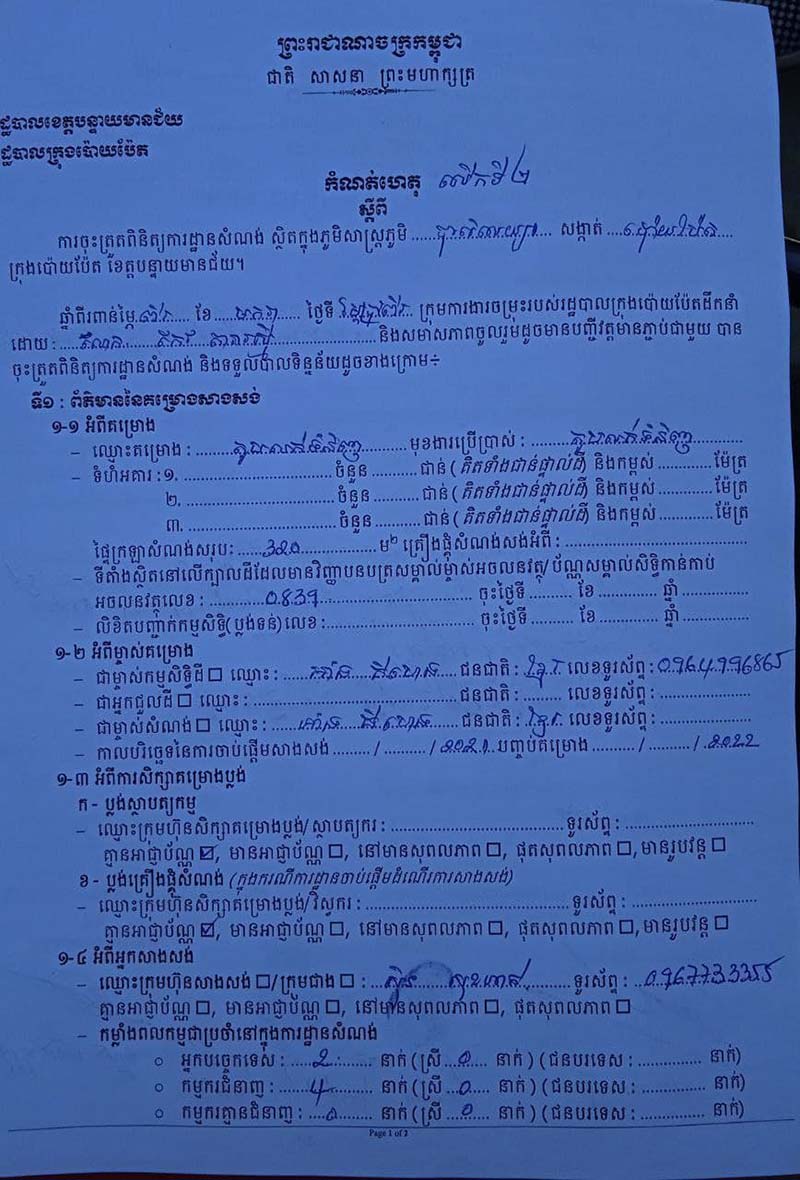 ព្រះរាជាណាចក្រកម្ពុជា
ជាតិ សាសនា ព្រះមហាក្សត្រ
ដ្ឋបាលខេត្តបន្ទាយមានជ័យ
ដ្ឋបាលក្រុងប៉ោយប៉ែត
កំណត់ហេតុ លើកទី ២
ស្តីពី
ការចុះត្រួតពិនិត្យការដ្ឋានសំណង់ ស្ថិតក្នុងភូមិសាស្ត្រភូមិ .................... សង្កាត់ ....ប៉ោយប៉ែត....
ក្រុងប៉ោយប៉ែត ខេត្តបន្ទាយមានជ័យ។
ឆ្នាំពីរពាន់ម្ភៃ ............ ខែ ............ ថ្ងៃទី ............ ក្រុមការងារចម្រុះរបស់រដ្ឋបាលក្រុងប៉ោយប៉ែតដឹកនាំ
ដោយ : ........................................ និងសមាសភាពចូលរួមដូចមានបញ្ជីវត្តមានភ្ជាប់ជាមួយ បាន
ចុះត្រួតពិនិត្យការដ្ឋានសំណង់ និងទទួលបាលទិន្នន័យដូចខាងក្រោម÷
ទី១ : ព័ត៌មាននៃគម្រោងសាងសង់
១-១ អំពីគម្រោង
– ឈ្មោះគម្រោង : ........តូបលក់ទំនិញ........ មុខងារប្រើប្រាស់ : ........តូបលក់ទំនិញ........
– ទំហំអគារ : ១. ........................ ចំនួន .......... ជាន់ (គិតទាំងជាន់ផ្ទាល់ដី) និងកម្ពស់ ............ ម៉ែត្រ
២. ........................ ចំនួន .......... ជាន់ (គិតទាំងជាន់ផ្ទាល់ដី) និងកម្ពស់ ............ ម៉ែត្រ
៣. ........................ ចំនួន .......... ជាន់ (គិតទាំងជាន់ផ្ទាល់ដី) និងកម្ពស់ ............ ម៉ែត្រ
ផ្ទៃក្រឡាសំណង់សរុប: ......320............ ម២ គ្រឿងផ្គុំសំណង់សង់អំពី : ................................
– ទីតាំងស្ថិតនៅលើក្បាលដីដែលមានវិញ្ញាបនបត្រសម្គាល់ម្ចាស់អចលនវត្ថុ/ ប័ណ្ណសម្គាល់សិទ្ធិកាន់កាប់
អចលនវត្ថុលេខ : ............0839........................ ចុះថ្ងៃទី .......... ខែ ............ ឆ្នាំ ............
– លិខិតបញ្ជាក់កម្មសិទ្ធិ(ប្លង់ទន់)លេខ :........................ ចុះថ្ងៃទី .......... ខែ ............ ឆ្នាំ ............
១-២ អំពីម្ចាស់គម្រោង
– ជាម្ចាស់កម្មសិទ្ធិដី☐ ឈ្មោះ : ........................ ជនជាតិ : ខ្មែរ លេខទូរស័ព្ទ : 0964996865
– ជាអ្នកជួលដី☐ ឈ្មោះ : ................................ ជនជាតិ : .......... លេខទូរស័ព្ទ : ................
– ជាម្ចាស់សំណង់☐ ឈ្មោះ : ........................ ជនជាតិ : ខ្មែរ លេខទូរស័ព្ទ : ................
– កាលបរិច្ឆេទនៃការចាប់ផ្តើមសាងសង់ ........./ ........./ 2021 បញ្ចប់គម្រោង ........../ ........./ 2022
១-៣ អំពីការសិក្សាគម្រោងប្លង់
ក - ប្លង់ស្ថាបត្យកម្ម
– ឈ្មោះក្រុមហ៊ុនសិក្សាគម្រោងប្លង់/ ស្ថាបត្យករ : ................................ ទូរស័ព្ទ : ........................
គ្មានអាជ្ញាប័ណ្ណ ☑, មានអាជ្ញាប័ណ្ណ ☐, នៅមានសុពលភាព ☐, ផុតសុពលភាព ☐, មានរូបវន្ត ☐
ខ - ប្លង់គ្រឿងផ្គុំសំណង់ (ក្នុងករណីការដ្ឋានចាប់ផ្តើមដំណើរការសាងសង់)
– ឈ្មោះក្រុមហ៊ុនសិក្សាគម្រោងប្លង់/វិស្វករ : ................................ ទូរស័ព្ទ : ........................
គ្មានអាជ្ញាប័ណ្ណ ☑, មានអាជ្ញាប័ណ្ណ ☐, នៅមានសុពលភាព ☐, ផុតសុពលភាព ☐, មានរូបវន្ត ☐
១-៤ អំពីអ្នកសាងសង់
– ឈ្មោះក្រុមហ៊ុនសាងសង់ ☐/ ក្រុមជាង ☐ : ........................ ទូរស័ព្ទ : 0967733355
គ្មានអាជ្ញាប័ណ្ណ ☐, មានអាជ្ញាប័ណ្ណ ☐, នៅមានសុពលភាព ☐, ផុតសុពលភាព ☐
– កម្លាំងពលកម្មជាប្រចាំនៅក្នុងការដ្ឋានសំណង់
○ អ្នកបច្ចេកទេស : ....2........ នាក់ (ស្រី ..0.... នាក់ ) (ជនបរទេស : ............ នាក់)
○ កម្មករជំនាញ : ......4........ នាក់ (ស្រី ..0.... នាក់ ) (ជនបរទេស : ............ នាក់)
○ កម្មករគ្មានជំនាញ : ...0........ នាក់ (ស្រី ..0.... នាក់ ) (ជនបរទេស : ............ នាក់)
Page 1 of 2